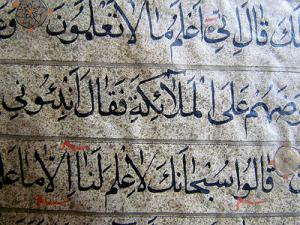 ك قال إني أعلم ما لا تعلمون و
رضهم على الملائكة فقال أنبئوني
قالوا سبحانك لا علم لنا إلا ما عل